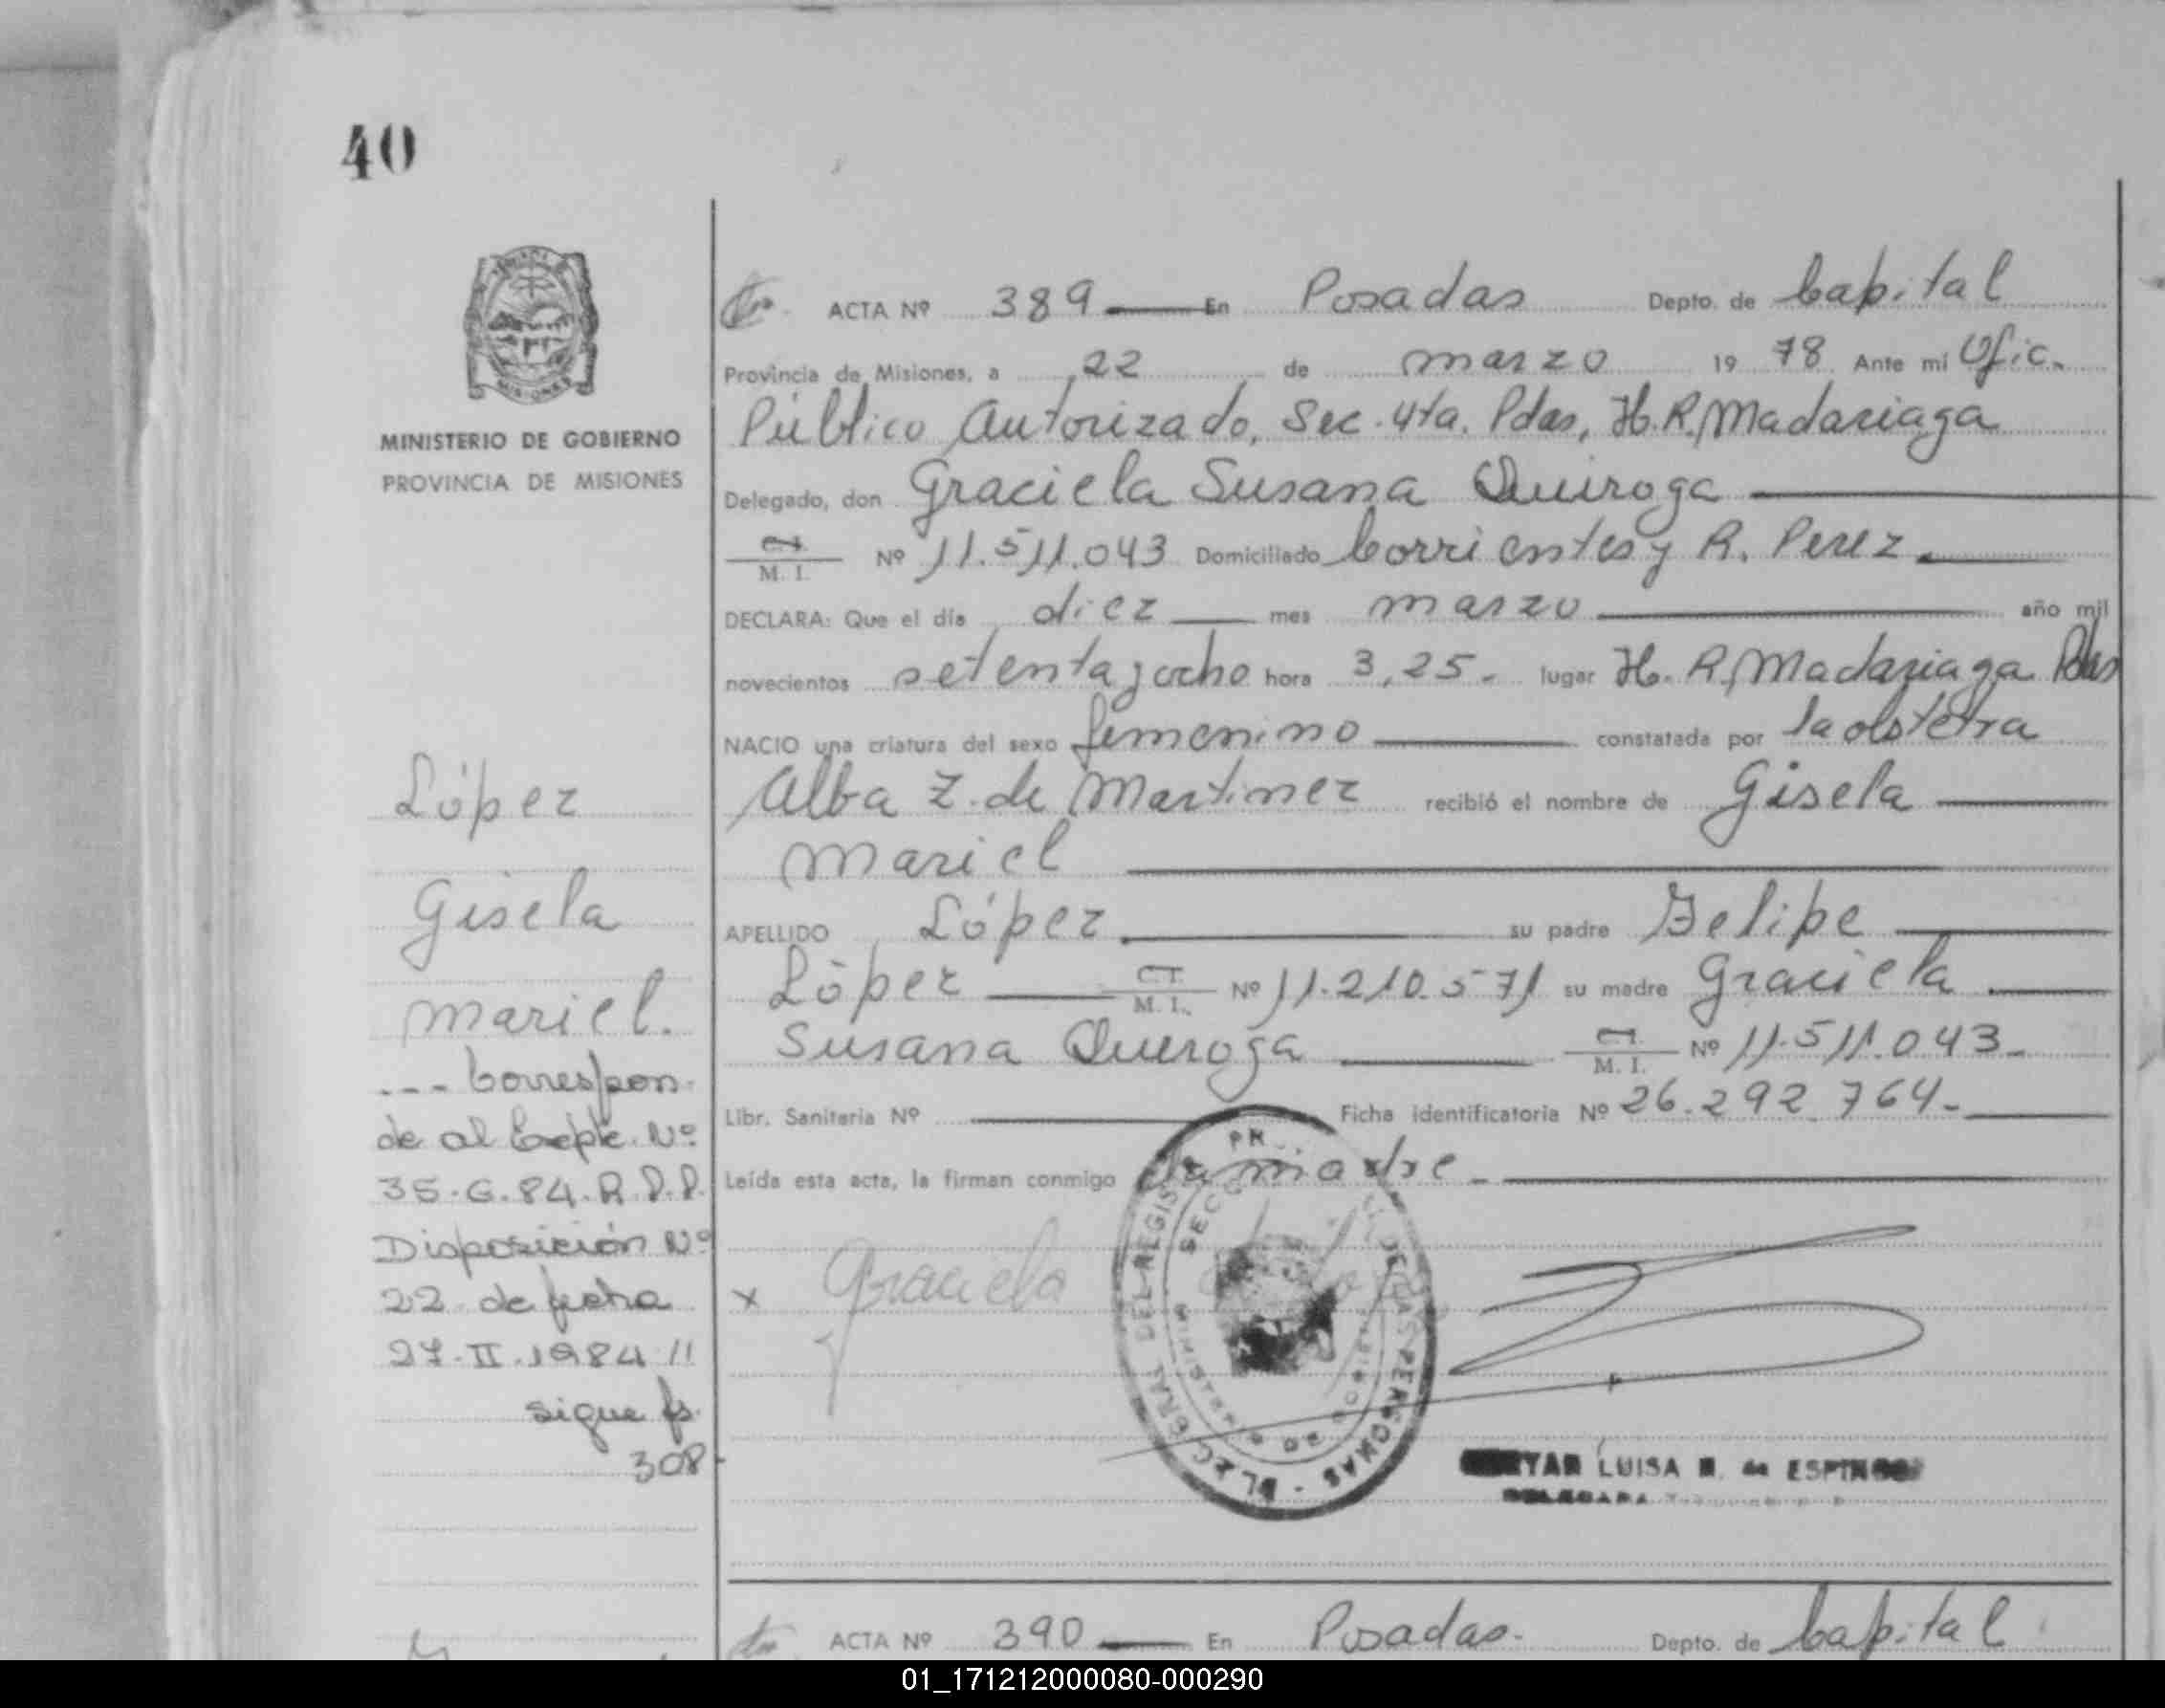 40
MINISTERIO DE GOBIERNO
PROVINCIA DE MISIONES
ACTA Nº 389 En Posadas Depto. de Capital
Provincia de Misiones, a 22 de marzo 19 78 Ante mi Ofic.
Público Autorizado, Sec. 4ta. Pdas, H. R. Madariaga
Delegado, don Graciela Susana Quiroga
C. I. M. I. Nº 11.511.043 Domiciliado Corrientes y R. Perez
DECLARA: Que el día diez mes marzo año mil
novecientos setenta y ocho hora 3,25 lugar H. R. Madariaga Pdas
NACIO una criatura del sexo femenino constatada por la obstetra
Alba Z. de Martinez recibió el nombre de Gisela
Mariel
APELLIDO López su padre Felipe
López C. I. M. I. Nº 11.210.571 su madre Graciela
Susana Queroga C. I. M. I. Nº 11.511.043
Libr. Sanitaria Nº Ficha identificatoria Nº 26.292.764
Leída esta acta, la firman conmigo la madre
x Graciela
LUISA de
López
Gisela
Mariel.
--- Correspon
de al Expte. Nº
35.G.84.R.P.P.
Disposición Nº
22 de fecha
27.II.1984 //
sigue fs.
308
ACTA Nº 390 En Posadas. Depto. de Capital
01_171212000080-000290